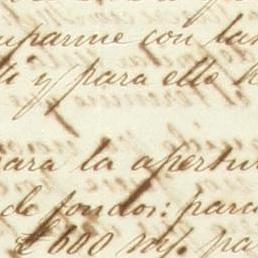 uparme con tan
di y para ello h
para la apertur
de fondos: para
£ 600 m/. pa